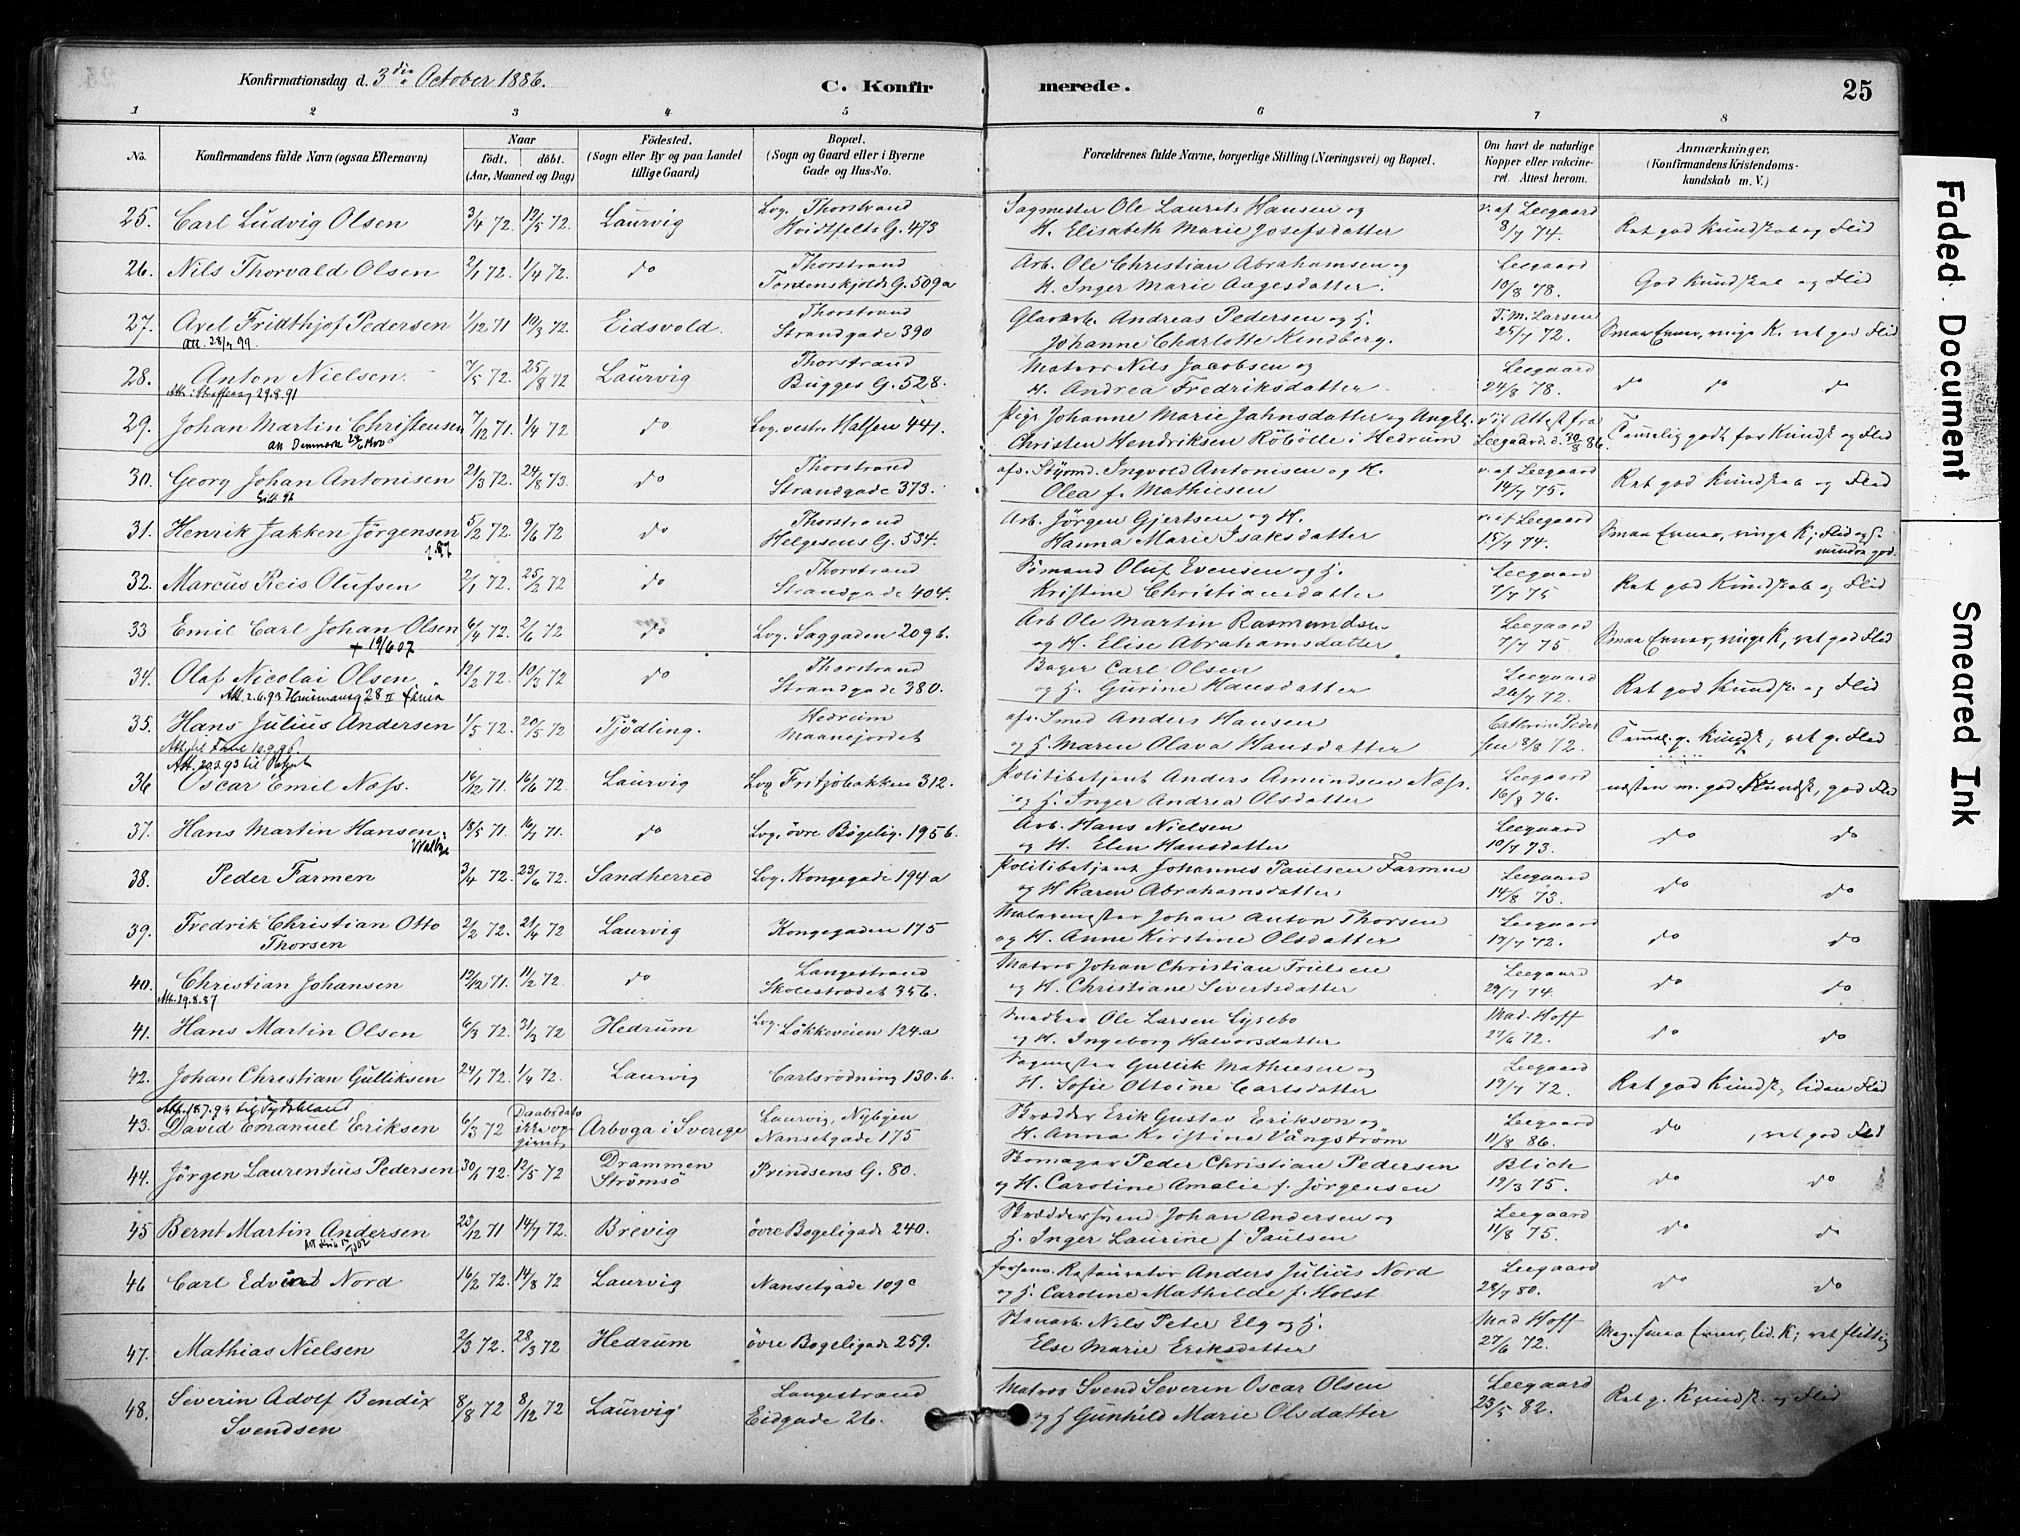 Konfirmationsdag d. 3die October 1886. C. Konfirmerede. 25
1 2 3 4 5 6 7 8
No. Konfirmandens fulde Navn (ogsaa Efternavn) Naar födt. döbt. (Aar, Maaned og Dag) Födested. (Sogn eller By og paa Landet tillige Gaard) Bopæl. (Sogn og Gaard eller i Byerne Gade og Hus-No. Forældrenes fulde Navne, borgerlige Stilling (Næringsvei) og Bopæl. Om havt de naturlige Kopper eller vakcineret. Attest herom. Anmærkninger, (Konfirmandens Kristendomskundskab m. V.)
25. Carl Ludvig Olsen 3/4 72. 12/5 72. Laurvig Lvg. Thorstrand Hvidtfelts G. 473 Sagmester Ole Laurits Hansen og H. Elisabeth Marie Josefsdatter v. af Leegaard 8/7 74. Ret god Kundskab og Flid
26. Nils Thorvald Olsen 2/1 72. 1/4 72. do Thorstrand Tordenskjolds G. 509a Arb. Ole Christian Abrahamsen og H. Inger Marie Aagesdatter. Leegaard 10/8 78. God Kundskab og Flid
27. Axel Fridthjof Pedersen 1/12 71 10/3 72. Eidsvold. Thorstrand Strandgade 390 Glasarb. Andreas Pedersen og H. Johanne Charlotte Kindberg. T. M. Larsen 25/7 72. Smaa Evner, ringe K. ret god Flid
Att. 28/7 99
28. Anton Nielsen 7/5 72. 25/8 72 Laurvig Thorstrand Bugges G. 528. Matros Nils Jacobsen og H. Andrea Fredriksdatter Leegaard 24/8 78. do do do
29.8.91
29. Johan Martin Christensen 7/12 71. 1/4 72 do Lvg. vestr. Halsen 441. Pige Johanne Marie Jahnsdatter og Christen Hendriksen Röbölle i Hedrum Attest fra Leegaard d. 30/8 86. Temmelig godt for Kundsk og Flid
Att Denmark
30. Georg Johan Antonisen 21/3 72. 24/8 73. do Thorstrand Strandgade 373. afs. Styrmd. Ingvold Antonisen og H. Olea f. Mathiesen v. af Leegaard 14/7 75. Ret god Kundskab og Flid
31. Henrik Jakken Jörgensen 5/2 72. 9/6 72 do Thorstrand Helgesens G. 534. Arb. Jörgen Gjertsen og H. Hanna Marie Isaksdatter v. af Leegaard 15/7 74. Smaa Evner, ringe K; Flid mindre god.
32. Marcus Reis Olufsen 2/1 72. 25/2 72 do Thorstrand Strandgade 404. Sömand Oluf Evensen og H. Kristine Christiansdatter Leegaard 7/7 75 Ret god Kundskab og Flid
33 Emil Carl Johan Olsen 6/4 72. 2/6 72 do Lvg. Saggaden 209b. Arb Ole Martin Rasmundsen og H. Elise Abrahamsdatter Leegaard 7/7 75 Smaa Evner, ringe K, ret god Flid
+ 19/6 07
34. Olaf Nicolai Olsen 12/2 72. 10/3 72 do Thorstrand Strandgade 380. Bager Carl Olsen og H. Gurine Hansdatter Leegaard 26/7 72. Ret god Kundsk. og Flid
Att. 2.6.93
35. Hans Julius Andersen 1/5 72. 20/5 72 Tjödling. Hedrum Maanejordet afs. Smed Anders Hansen og H. Maren Olava Hansdatter Cathrine Pedersen 8/8 72. Temmel. g. Kundsk, ret g. Flid
36 Oscar Emil Næss. 16/12 71. 16/6 72 Laurvig Lvg Fritzöbakken 312. Politibetjent Anders Amundsen Næss. og H. Inger Andrea Olsdatter Leegaard 16/8 76. næsten m. god Kundsk, god Flid
37. Hans Martin Hansen. 18/5 71. 16/7 71. do Lvg. övre Bögelig. 195 b. Arb. Hans Nielsen og H. Elen Hansdatter Leegaard 10/7 73. do do
38. Peder Farmen 3/4 72. 23/6 72. Sandherred Lvg. Kongegade 194a Politibetjent Johannes Paulsen Farmen og H Karen Abrahamsdatter Leegaard 14/8 73. do do
39. Fredrik Christian Otto Thorsen 2/2 72. 21/4 72 Laurvig Kongegaden 175 Malermester Johan Anton Thorsen og H. Anne Kirstine Olsdatter Leegaard 19/7 72. do do
40. Christian Johansen 12/12 71. 11/2 72. do Langestrand Skolestrædet 356. Matros Johan Christian Trulsen og H. Christiane Sivertsdatter Leegaard 29/7 74. do do
Att. 29.8.87
41. Hans Martin Olsen 6/3 72. 31/3 72 Hedrum Lvg. Lökkeveien 124.a Snedker Ole Larsen Lysebo og H. Ingeborg Halvorsdatter Mad. Hoff 27/6 72. do do
42. Johan Christian Gulliksen 24/1 72. 1/4 72. Laurvig Carlsrödning 130.b. Sagmester Gullik Mathiesen og H. Sofie Ottoine Carlsdatter Leegaard 19/7 72. Ret god Kundsk, liden Flid
43. David Emanuel Eriksen 6/3 72 Daabsdato ikke opgivet Arboga i Sverige Laurvig, Nybyen Nansetgade 175 Skrædder Erik Gustav Erikson og H. Anna Kristina Vångström Leegaard 11/8 86. do , ret god Flid
44. Jörgen Laurentius Pedersen 30/1 72. 12/5 72 Drammen Strömsö Prindsens G. 80. Skomager Peder Christian Pedersen og H. Caroline Amalie f. Jörgensen Blich 19/3 75. do do
45 Bernt Martin Andersen 23/12 71 14/7 72. Brevig övre Bögeligade 240. Skræddersvend Johan Andersen og H. Inger Laurine f Paulsen Leegaard 11/8 75. do do
46 Carl Edvind Nord 16/2 72. 14/8 72 Laurvig Nansetgade 109c Restauratör Anders Julius Nord og H. Caroline Mathilde f. Holst Leegaard 28/7 80. do do
47. Mathias Nielsen 2/3 72. 28/3 72 Hedrum övre Bögeligade 259. Stenarb. Nils Peter Elg og H. Else Marie Eriksdatter Mad Hoff 27/6 72. Meg. smaa Evner, lid. K; ret flittig
48. Severin Adolf Bendix Svendsen 8/8 72 8/12 72 Laurvig Langestrand Eidgade 26. Matros Svend Severin Oscar Olsen og H Gunhild Marie Olsdatter Leegaard 23/5 82. Ret g. Kundsk. og Flid
Faded Document
Smeared Ink